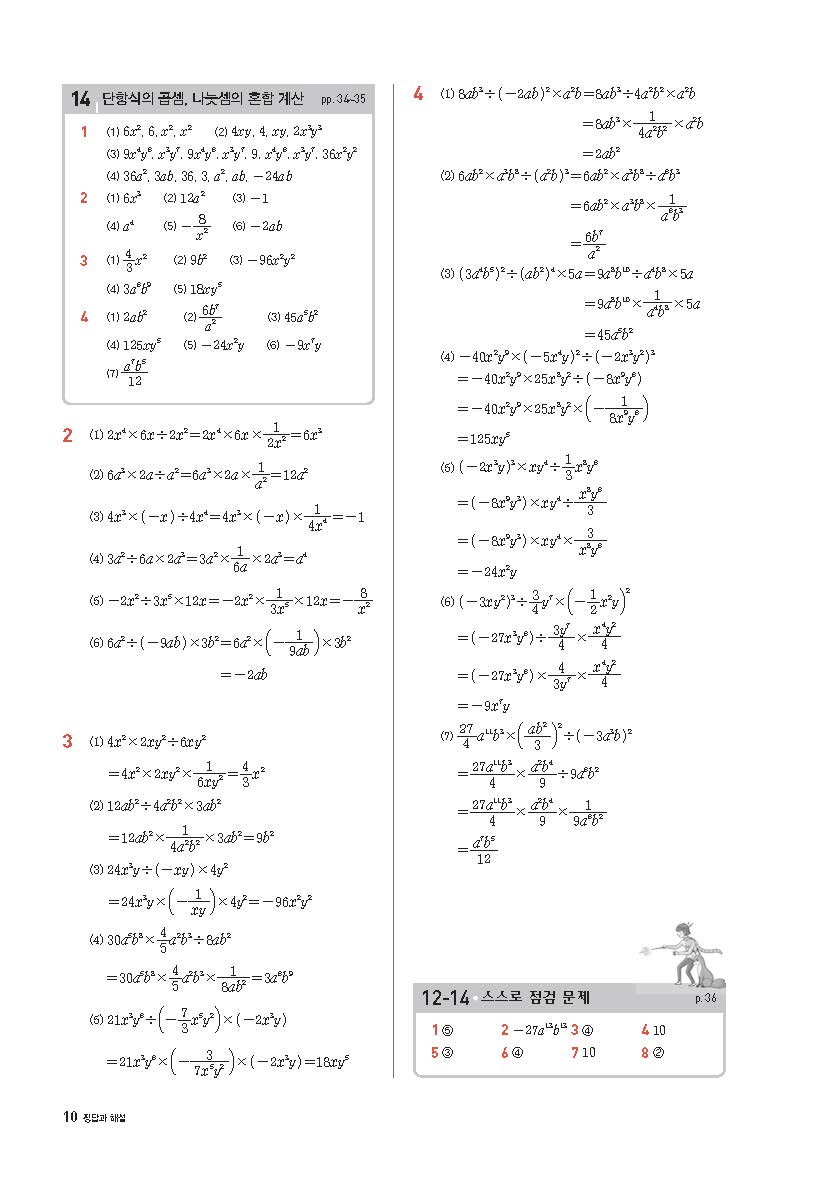 14 단항식의 곱셈, 나눗셈의 혼합 계산 pp. 34~35
1 (1) 6x², 6, x², x² (2) 4xy, 4, xy, 2x³y³
(3) 9x⁴y⁶, x³y⁷, 9x⁴y⁶, x³y⁷, 9, x⁴y⁶, x³y⁷, 36x²y²
(4) 36a², 3ab, 36, 3, a², ab, −24ab
2 (1) 6x³ (2) 12a² (3) −1
(4) a⁴ (5) −8/x² (6) −2ab
3 (1) 4/3x² (2) 9b² (3) −96x²y²
(4) 3a⁶b⁹ (5) 18xy⁵
4 (1) 2ab² (2) 6b⁷/a² (3) 45a⁵b²
(4) 125xy⁵ (5) −24x²y (6) −9x⁷y
(7) a⁷b⁵/12
2 (1) 2x⁴×6x÷2x²=2x⁴×6x×1/2x²=6x³
(2) 6a³×2a÷a²=6a³×2a×1/a²=12a²
(3) 4x³×(−x)÷4x⁴=4x³×(−x)×1/4x⁴=−1
(4) 3a²÷6a×2a³=3a²×1/6a×2a³=a⁴
(5) −2x²÷3x⁵×12x=−2x²×1/3x⁵×12x=−8/x²
(6) 6a²÷(−9ab)×3b²=6a²×(−1/9ab)×3b²
=−2ab
3 (1) 4x²×2xy²÷6xy²
=4x²×2xy²×1/6xy²=4/3x²
(2) 12ab²÷4a²b²×3ab²
=12ab²×1/4a²b²×3ab²=9b²
(3) 24x³y÷(−xy)×4y²
=24x³y×(−1/xy)×4y²=−96x²y²
(4) 30a⁵b⁸×4/5a²b³÷8ab²
=30a⁵b⁸×4/5a²b³×1/8ab²=3a⁶b⁹
(5) 21x³y⁶÷(−7/3x⁵y²)×(−2x³y)
=21x³y⁶×(−3/7x⁵y²)×(−2x³y)=18xy⁵
4 (1) 8ab³÷(−2ab)²×a²b=8ab³÷4a²b²×a²b
=8ab³×1/4a²b²×a²b
=2ab²
(2) 6ab²×a³b⁸÷(a²b)³=6ab²×a³b⁸÷a⁶b³
=6ab²×a³b⁸×1/a⁶b³
=6b⁷/a²
(3) (3a⁴b⁵)²÷(ab²)⁴×5a=9a⁸b¹⁰÷a⁴b⁸×5a
=9a⁸b¹⁰×1/a⁴b⁸×5a
=45a⁵b²
(4) −40x²y⁹×(−5x⁴y)²÷(−2x³y²)³
=−40x²y⁹×25x⁸y²÷(−8x⁹y⁶)
=−40x²y⁹×25x⁸y²×(−1/8x⁹y⁶)
=125xy⁵
(5) (−2x³y)³×xy⁴÷1/3x⁸y⁶
=(−8x⁹y³)×xy⁴÷x⁸y⁶/3
=(−8x⁹y³)×xy⁴×3/x⁸y⁶
=−24x²y
(6) (−3xy²)³÷3/4y⁷×(−1/2x²y)²
=(−27x³y⁶)÷3y⁷/4×x⁴y²/4
=(−27x³y⁶)×4/3y⁷×x⁴y²/4
=−9x⁷y
(7) 27/4a¹¹b³×(ab²/3)²÷(−3a³b)²
=27a¹¹b³/4×a²b⁴/9÷9a⁶b²
=27a¹¹b³/4×a²b⁴/9×1/9a⁶b²
=a⁷b⁵/12
12-14 · 스스로 점검 문제 p. 36
1 ⑤ 2 −27a¹³b¹³ 3 ④ 4 10
5 ③ 6 ④ 7 10 8 ②
10 정답과 해설